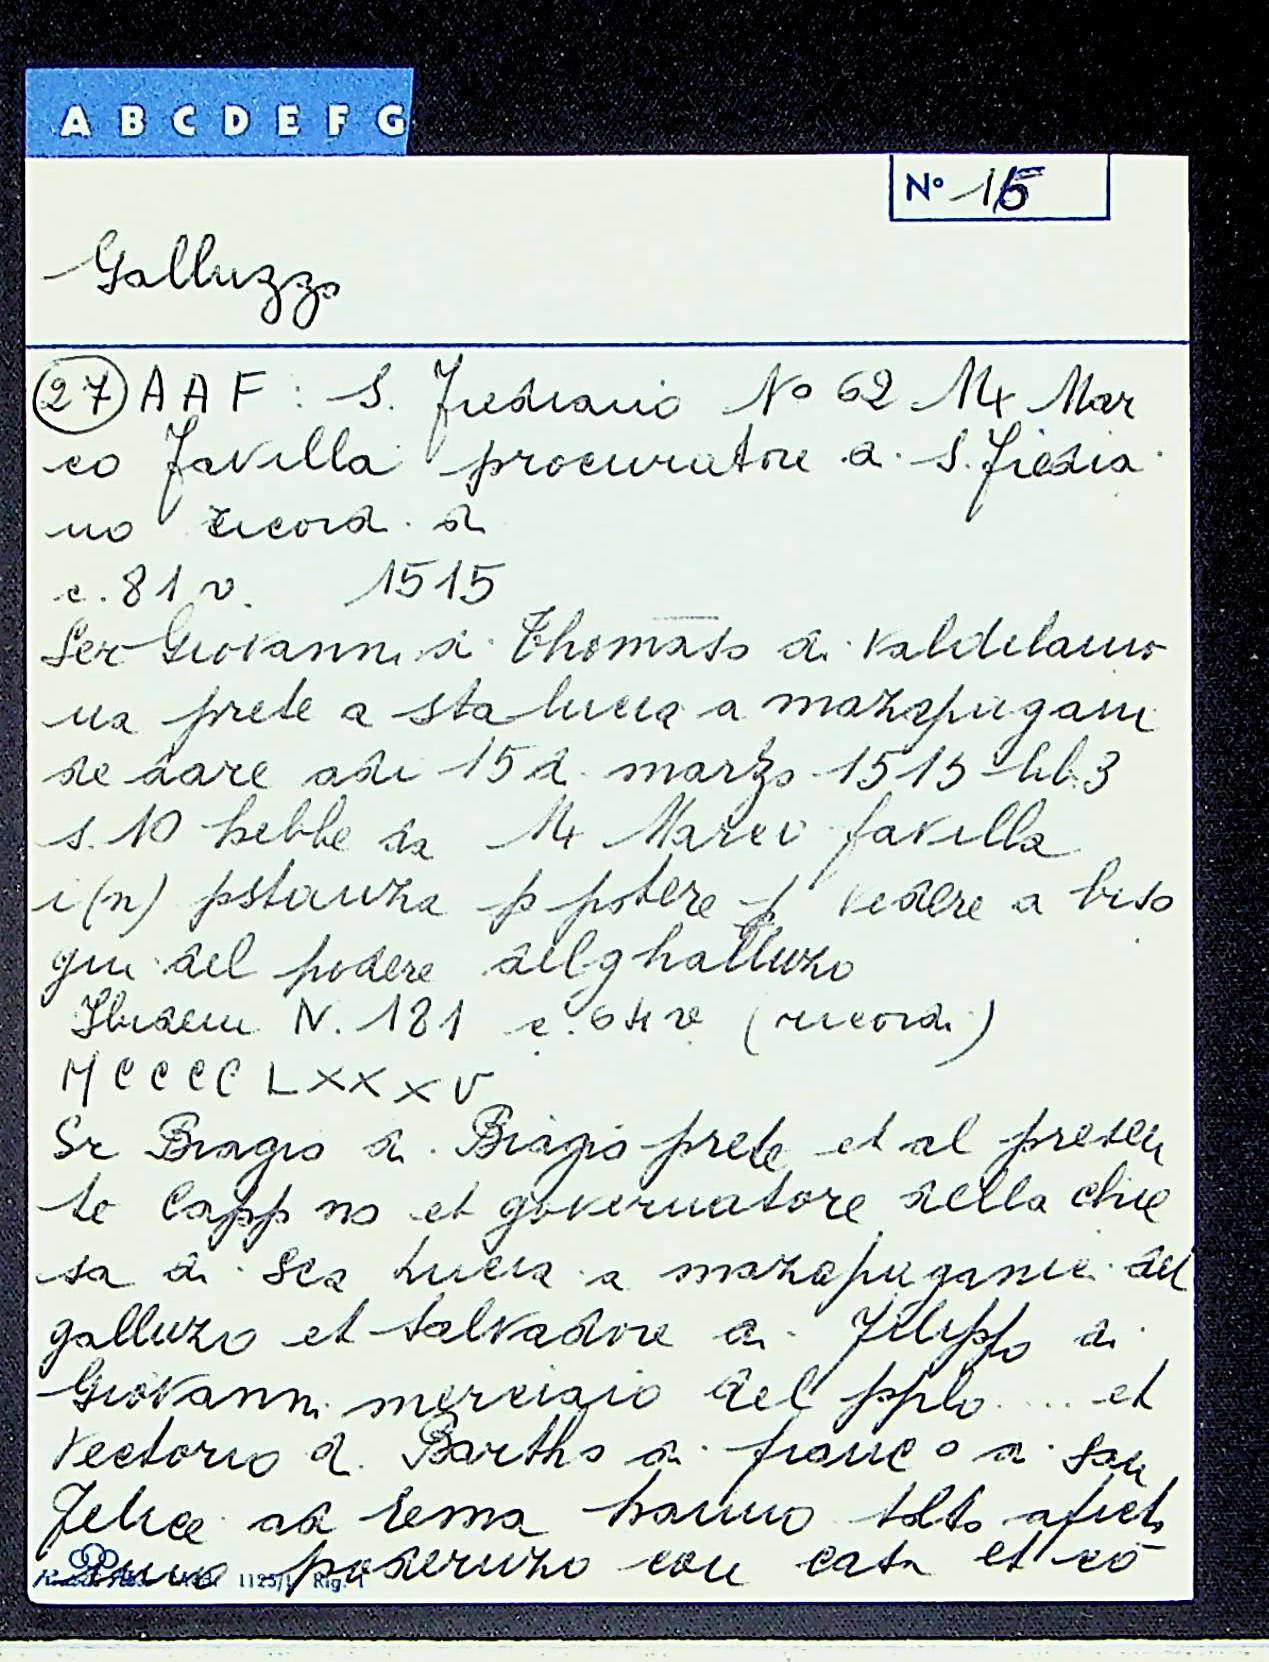 A B C D E F G
N° 15
Galluzzo
(27) A A F : S. Frediano N° 62 M Mar
co Favilla procuratore di S. Fredia
no ricordi di
c. 81 v. 1515
Ser Giovanni di Thomaso di Valdilamo
na prete a sta lucia a mazapugani
de dare adi 15 di marzo 1515 lib. 3
s. 10 hebbe da M Marco favilla
i(n) pstanza p potere p vedere a biso
gni del podere del ghalluzo
Ibidem N. 121 c. 64 v (ricordi)
M C C C C L X X X V
Sr Biagio di Biagio prete et al presen
te Capp no et governatore della chie
sa di Sca Lucia a mazapugani del
galluzo et Salvadore di Filippo di
Giovanni merciaio del pplo .... et
Vectorio di Bartho di franc o di San
Felice ad Ema hanno tolto afict
uno poderuzo con casa et co
1125/1 Rig. 1